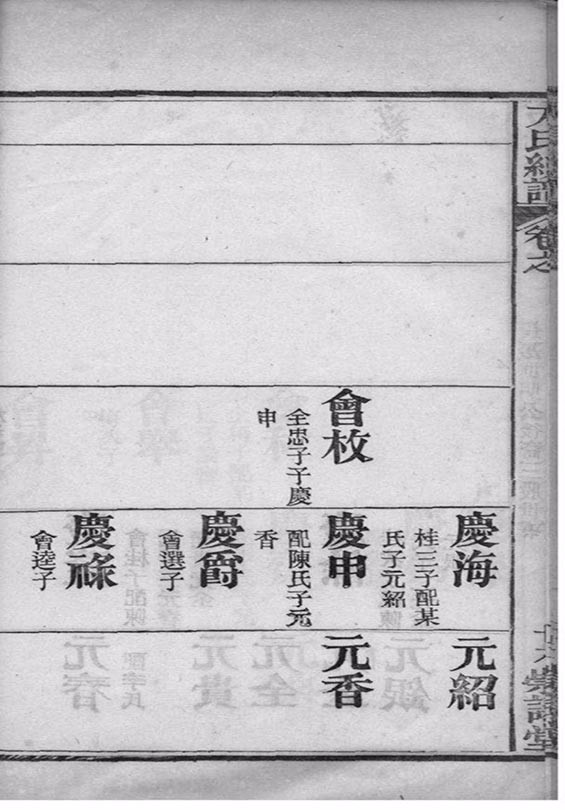 氏總譜
卷之
會枚
全忠子子慶
申
慶海
桂三子配某
氏子元紹
慶申
配陳氏子元
香
慶爵
會選子
慶祿
會逵子
元紹
元香